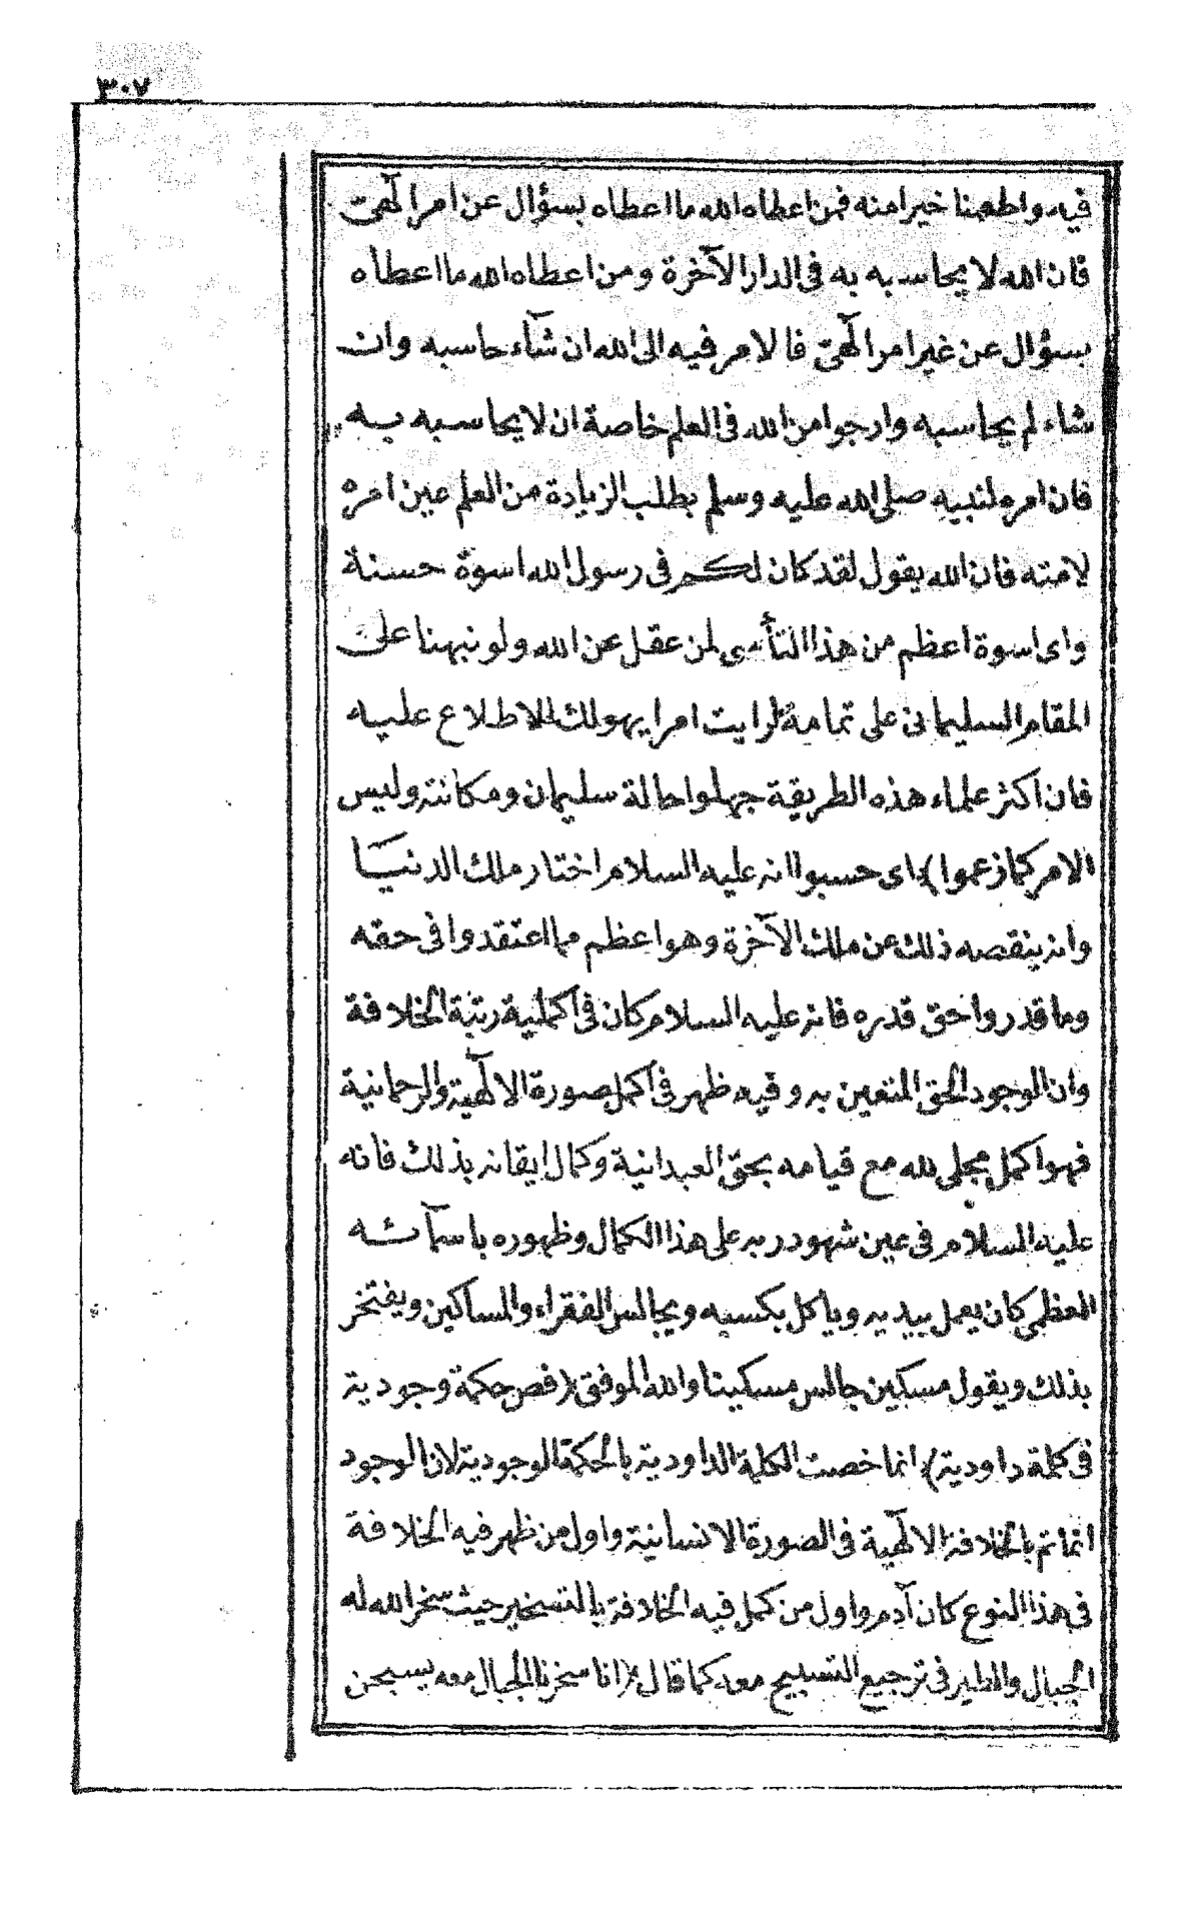 ٣٠٧
فيه واطعمنا خيرا منه فمن اعطاه الله ما اعطاه بسؤال عن امر الٓهى
فان الله لا يحاسبه به فى الدار الآخرة ومن اعطاه الله ما اعطاه
بسؤال عن غير امر الٓهىّ فالامر فيه الى الله ان شآء حاسبه وان
شاء لم يحاسبه وارجوا من الله فى العلم خاصة ان لا يحاسبه به
فان امره لنبيه صلى الله عليه وسلم بطلب الزيادة من العلم عين امره
لامته فان الله يقول لقد كان لكم فى رسول الله اسوة حسنة
واى اسوة اعظم من هذا التأسى لمن عقل عن الله ولو نبهنا على
المقام السليمانى على تمامهٔ لرايت امرا يهولك للاطلاع عليه
فان اكثر علماء هذه الطريقة جهلوا حالة سليمان ومكانته وليس
الامر كما زعموا) اى حسبوا انه عليه السلام اختار ملك الدنيا
وانه ينقصه ذلك عن ملك الآخرة وهو اعظم مما اعتقدوا فى حقه
وما قدروا حق قدره فانه عليه السلام كان فى اكملية رتبة الخلافة
وان الوجود الحق المتعين به وفيه ظهر فى اكمل صورة الالٓهية والرحمانية
فهو اكمل مجلى لله مع قيامه بحق العبدانية وكمال ايقانه بذلك فانه
عليه السلام فى عين شهود ربه على هذا الكمال وظهوره باسمآئه
العظمى كان يعمل بيديه وياكل بكسبه ويجالس الفقراء والمساكين ويفتخر
بذلك ويقول مسكين جالس مسكينا والله الموفق (فص حكمة وجودية
فى كلمة داودية) انما خصت الكلمة الداودية بالحكمة الوجودية لان الوجود
انما تم بالخلافة الالٓهية فى الصورة الانسانية واول من ظهر فيه الخلافة
فى هذا النوع كان آدم واول من كمل فيه الخلافة بالتسخير حيث سخر الله له
الجبال والطير فى ترجيع التسبيح معه كما قال (انا سخرنا الجبال معه يسبحن